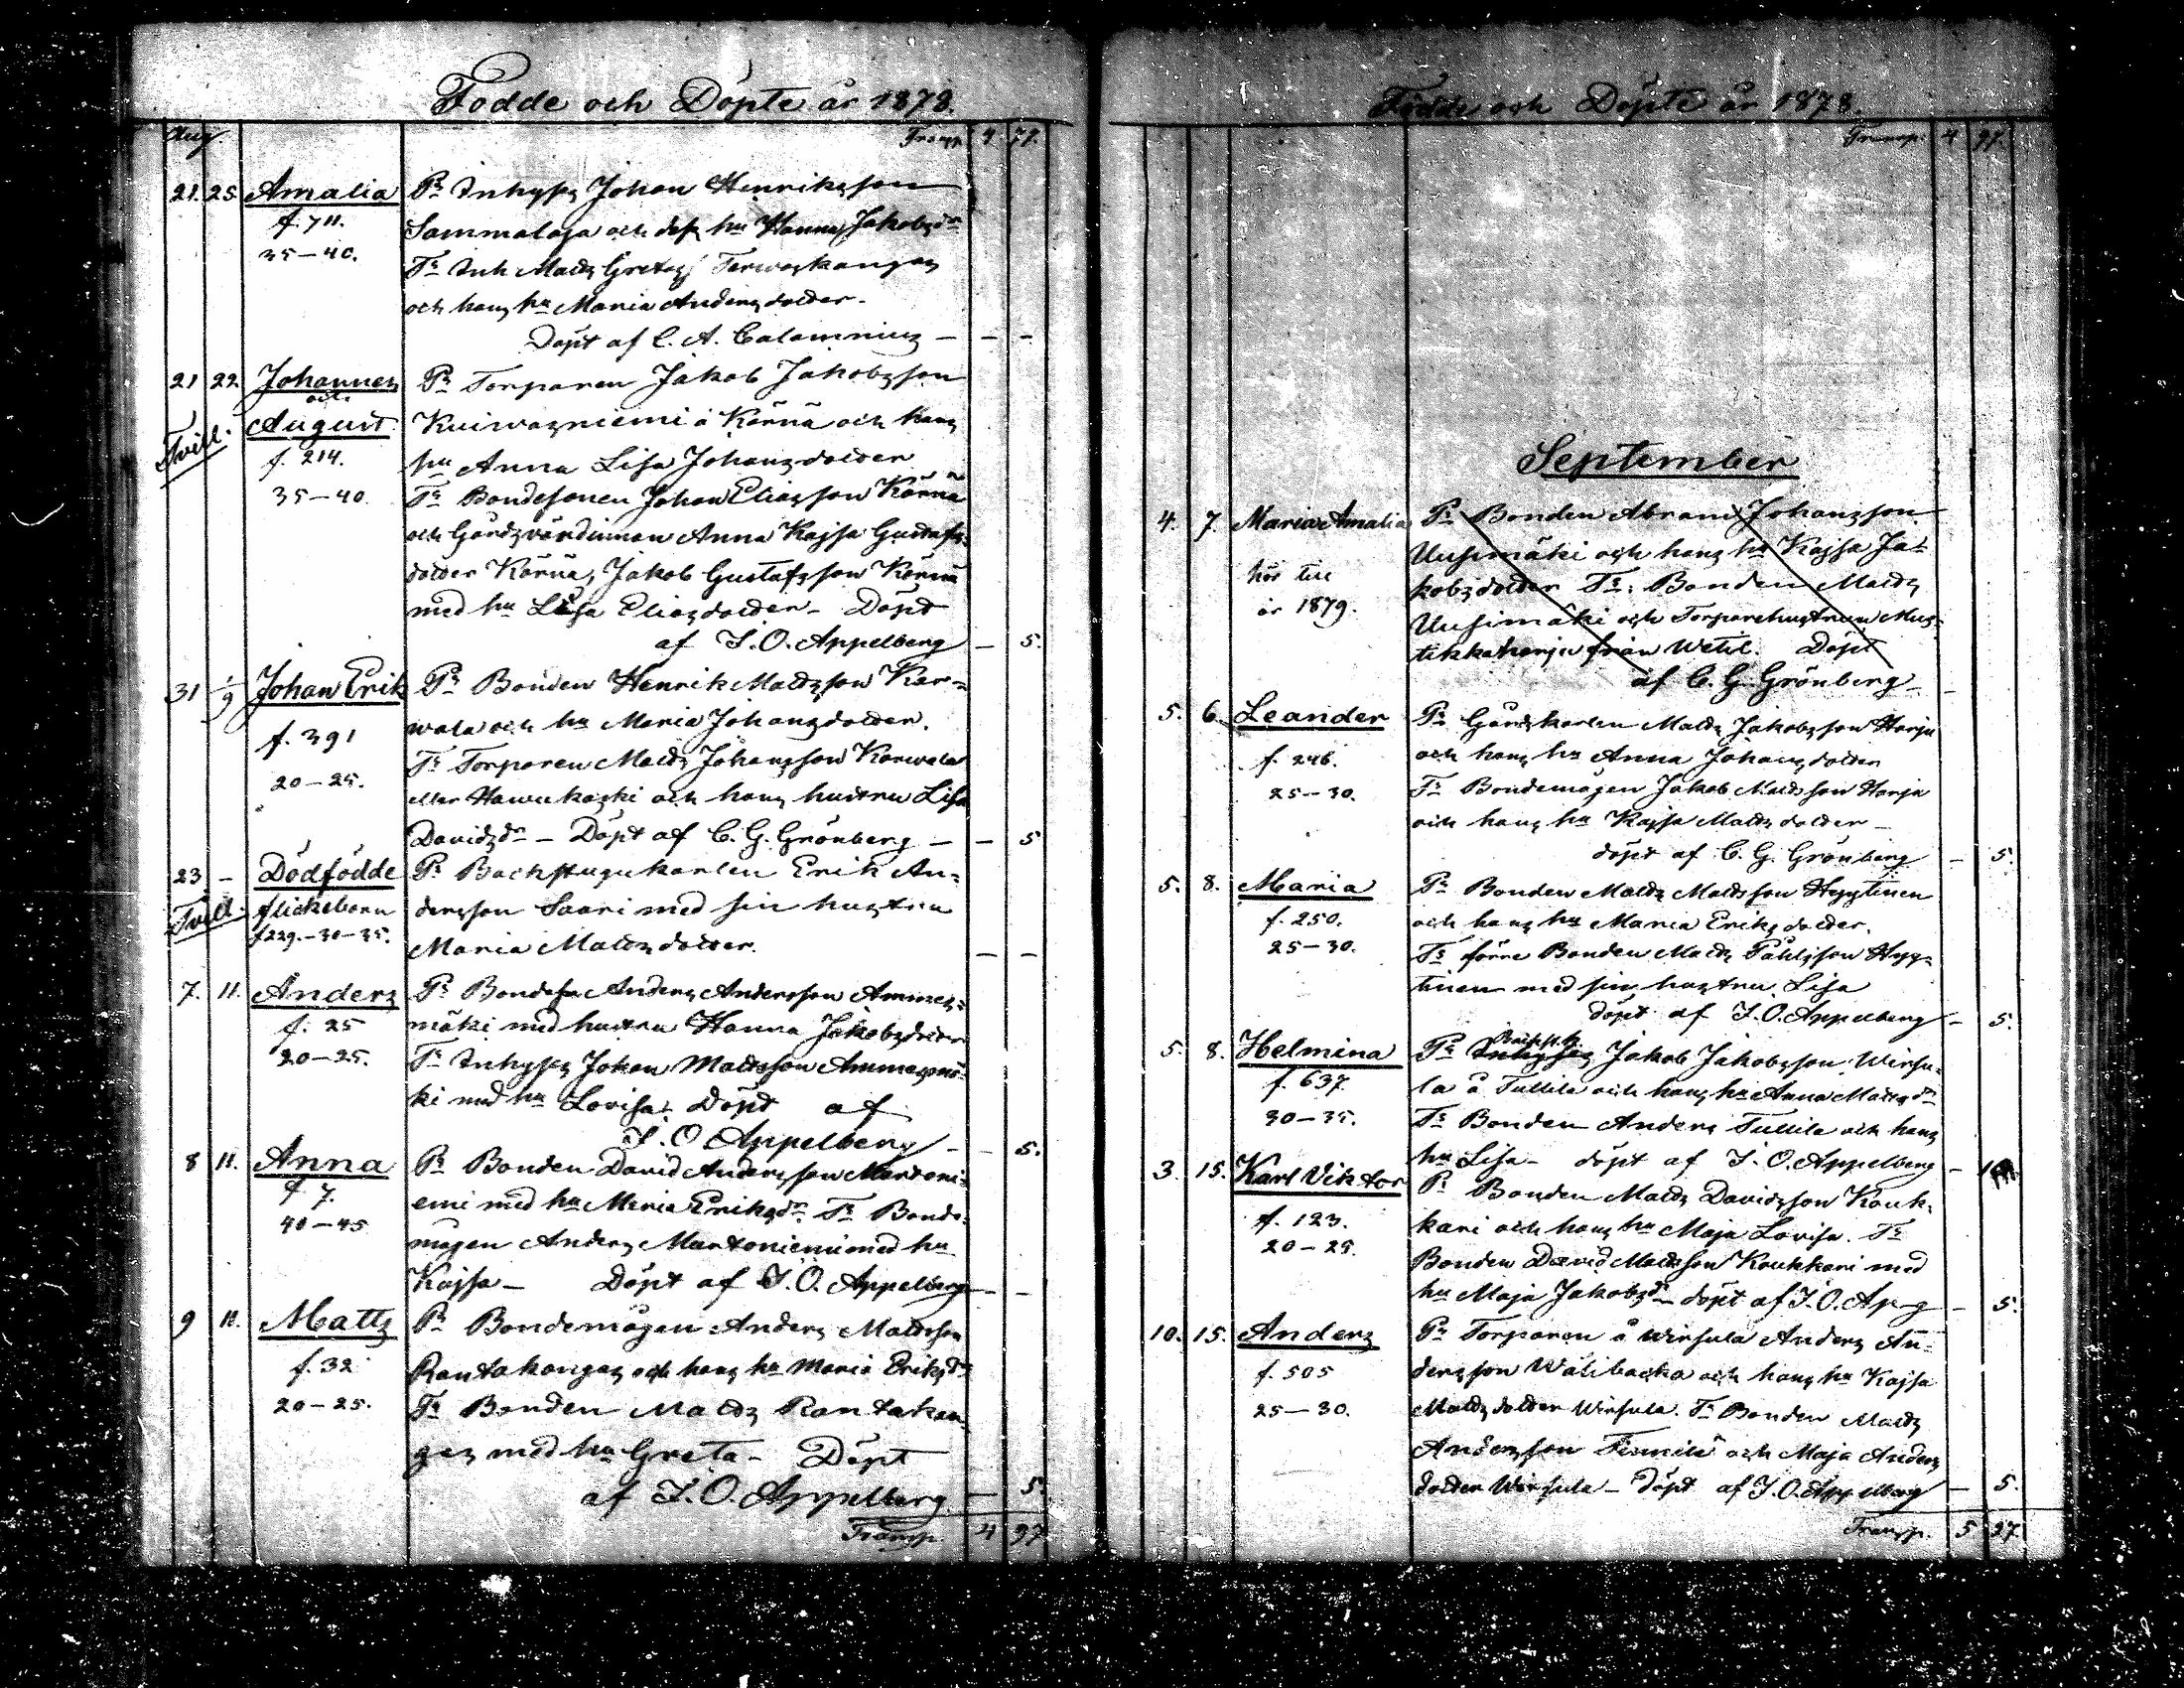 Födde och Döpte år 1878.
Aug. Transp. 4 72.
21. 25. Amalia Pr Inhyses Johan Henriksson
f. 711. Sammalaja och dess hu Hanna Jakobsdr
35–40. Tr Inh Matts Terwaskangas
och hans hu Maria Andersdotter.
Döpt af C. A. Calamnius – – –
21 22. Johannes Pr Torparen Jakob Jakobsson
och
Tvill. August Kuiwasniemi å Kärnä och hans
f. 214. hu Anna Lisa Johansdotter
35–40. Tr Bondesonen Johan Eliasson Kärnä
och Gårdsvärdinnan Anna Kajsa Gustafs-
dotter Kärnä, Jakob Gustafsson Kärnä
med hu Lisa Eliasdotter – Döpt
af I. O. Appelberg – 5.
31 1/9 Johan Erik Pr Bonden Henrik Mattsson Kar-
f. 391 wala och hu Maria Johansdotter.
Tr Torparen Matts Johansson Karwala
20–25. eller Hawukoski och hans hustru Lisa
Davidsdr – Döpt af C. G. Grönberg – – 5
23 – Dödfödde Pr Backstugukarlen Erik An-
Tvill. flickebarn dersson Saari med sin hustru
f 229.–30–35. Maria Mattsdotter. – –
7. 11. Anders Pr Bondes Anders Andersson Ammes-
f. 25 mäki med hustru Hanna Jakobsdotter
20–25. Tr Inhyses Johan Mattsson Ammesmä-
ki med hu Lovisa. Döpt af
I. O Appelberg – 5.
8 11. Anna Pr Bonden David Andersson Martoni-
f 7. emi med hu Maria Eriksdr. Tr Bonde-
40–45 mågen Anders Martoniemi med hu
Kajsa – Döpt af I. O. Appelberg – –
9 11. Matts Pr Bondemågen Anders Mattsson
f. 32 Rantakangas och hans hu Maria Eriksdr
20–25. Tr Bonden Matts Rantakan-
gas med hu Greta – Döpt
af I. O. Appelberg – 5.
Transp. 4 97
Födde och Döpte år 1878.
Transp. 4 97.
September
4. 7. Maria Amalia Pr Bonden Abram Johansson
Uusimäki och hans hu Kajsa Ja-
hör till kobsdotter Tr: Bonden Matts
år 1879. Uusimäki och Torparehustrun Mus-
tikkaharju från Wetil. Döpt
af C. G. Grönberg –
5. 6. Leander Pr Gårdskarlen Matts Jakobsson Harju
f. 246. och hans hu Anna Johansdotter
25–30. Tr Bondemågen Jakob Mattsson Harju
och hans hu Kajsa Mattsdotter –
döpt af C. G. Grönberg – 5.
5. 8. Maria Pr Bonden Matts Mattsson Hyytinen
f. 250. och hans hu Maria Eriksdotter.
25–30. Tr förre Bonden Matts Påhlsson Hyy-
tinen med sin hustru Lisa
döpt af I. O. Appelberg – 5.
5. 8. Helmina Pr Inhyses Jakob Jakobsson Wirsu-
f. 637. la å Tullila och hans hu Anna Mattsdr
30–35. Tr Bonden Anders Tullila och hans
hu Lisa – döpt af I. O. Appelberg –
3. 15. Karl Viktor Pr Bonden Matts Davidsson Kauk-
f. 123. kari och hans hu Maja Lovisa. Tr
20–25. Bonden David Mattsson Kaukkari med
hu Maja Jakobsdr – döpt af I. O. Ap–g – 5.
10. 15. Anders Pr Torparen å Wirsula Anders An-
f. 505 dersson Wälibacka och hans hu Kajsa
25–30. Mattsdotter Wirsula. Tr Bonden Matts
Andersson och Maja Anders
dotter Wirsula – döpt af I. O. Appelberg – 5.
Transp. 5 27.